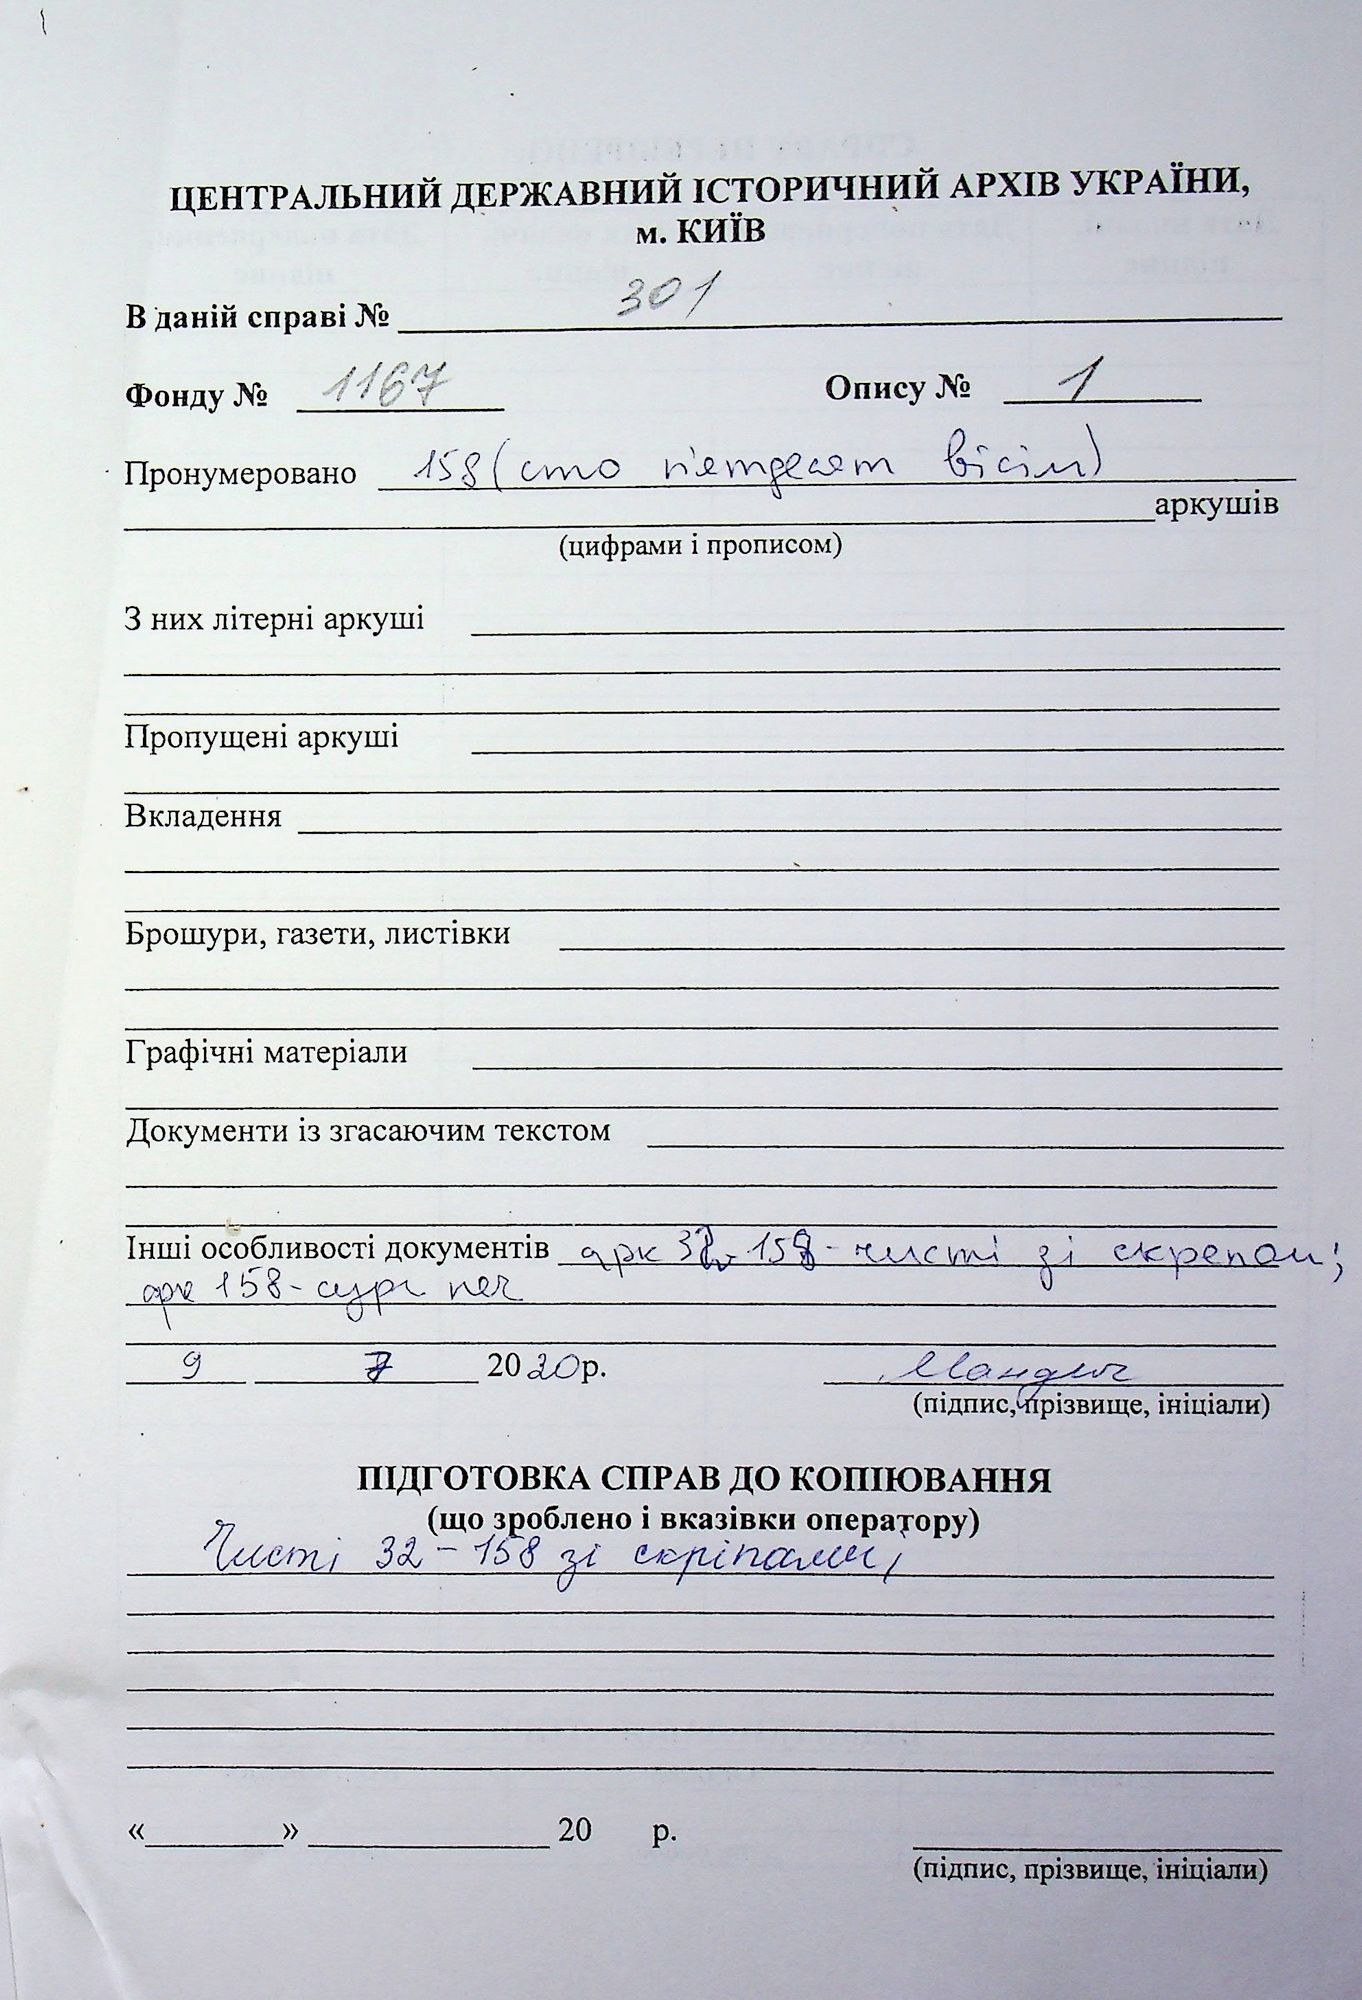 ЦЕНТРАЛЬНИЙ ДЕРЖАВНИЙ ІСТОРИЧНИЙ АРХІВ УКРАЇНИ,
м. КИЇВ
В даній справі № 301
Фонду № 1167 Опису № 1
Пронумеровано 158 (сто п'ятдесят вісім)
аркушів
(цифрами і прописом)
З них літерні аркуші
Пропущені аркуші
Вкладення
Брошури, газети, листівки
Графічні матеріали
Документи із згасаючим текстом
Інші особливості документів арк 32-158 - чисті зі скрепом;
арк 158 - сург печ
9 7 2020 р.
(підпис, прізвище, ініціали)
ПІДГОТОВКА СПРАВ ДО КОПІЮВАННЯ
(що зроблено і вказівки оператору)
Чисті 32 - 158 зі скріпами;
« » 20 р.
(підпис, прізвище, ініціали)